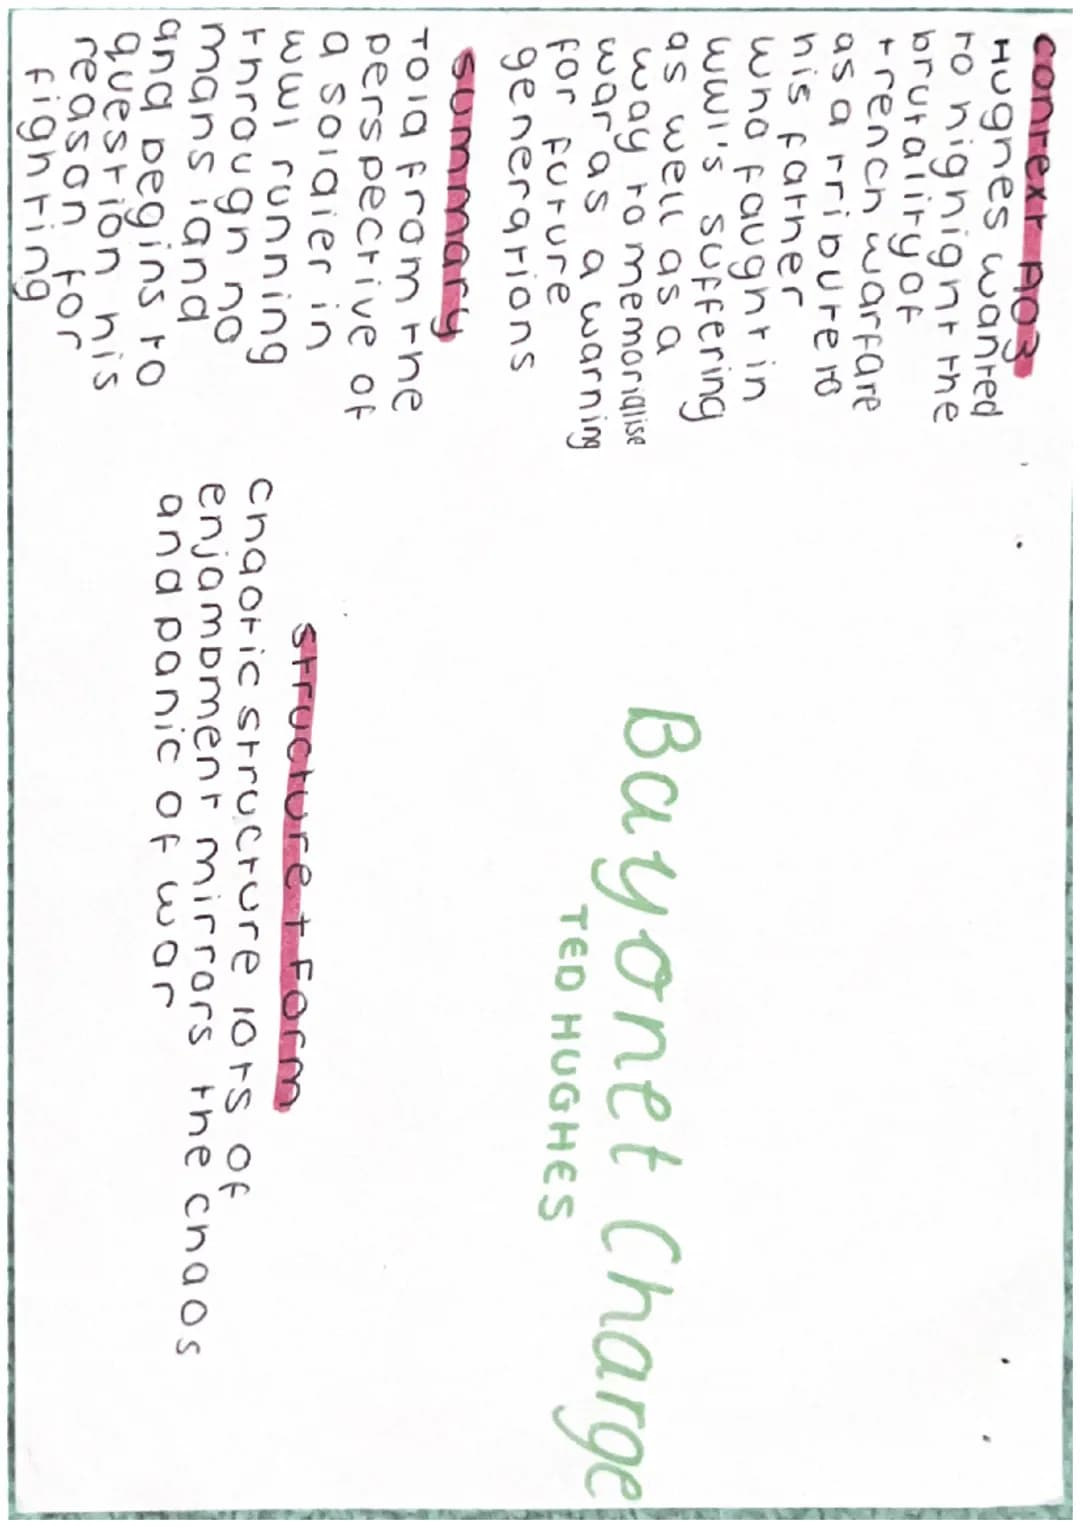 context AO3
Hughes wanted
to highlight the
brutality of
trench warfare
as a tribute to
his father
who fought in
WW1's suffering
as well as a
way to memorialise
war as a warning
for future
generations
summary
Told from the
perspective of
a soldier in
WW1 running
through no
mans land
and begins to
question his
reason for
fighting
Bayonet Charge
TED HUGHES
structure + Form
chaotic structure lots of
enjambment mirrors the chaos
and panic of war